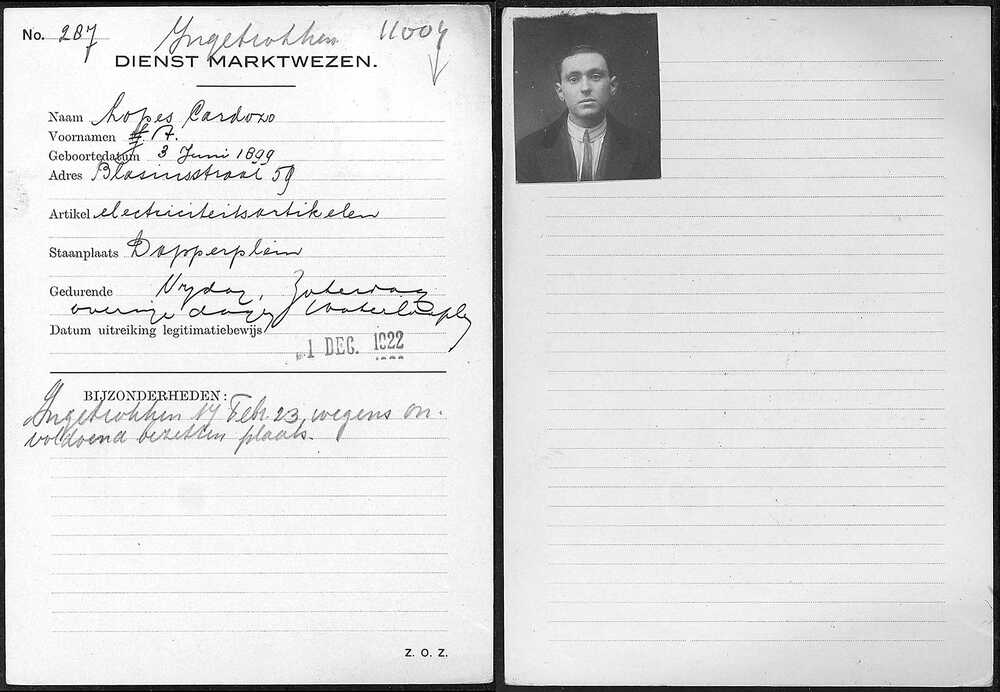 No. 287 Ingetrokken 11004
DIENST MARKTWEZEN.
Naam Lopes Cardozo
Voornamen A.
Geboortedatum 3 Juni 1899
Adres Blasiusstraat 59
Artikel electriciteitsartikelen
Staanplaats Dapperplein
Gedurende Vrydag, Zaterdag
overige dagen Waterlooplein
Datum uitreiking legitimatiebewijs
1 DEC. 1922
BIJZONDERHEDEN:
Ingetrokken 17 Febr 23, wegens on-
voldoend bezetten plaats.
Z. O. Z.